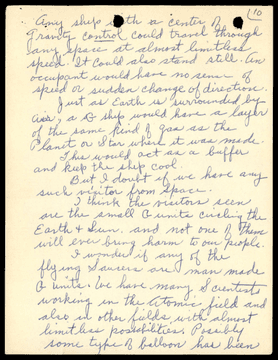 10
Any ship with a center of
Gravity control could travel through
any space at almost limitless
speed. It could also stand still. An
occupant would have no sense of
speed or sudden change of direction.
Just as Earth is surrounded by
Air, a G ship would have a layer
of the same kind of gas as the
Planet or Star where it was made.
This would act as a buffer
and keep the ship cool.
But I doubt if we have any
such visitor from space.
I think the visitors seen
are the small G units circling the
Earth & Sun. and not one of them
will ever bring harm to our people.
I wonder if any of the
flying Saucers are man made
G units. We have many Scientists
working in the atomic field and
also in other fields with almost
limitless possibilities. Possibly
some type of balloon has been